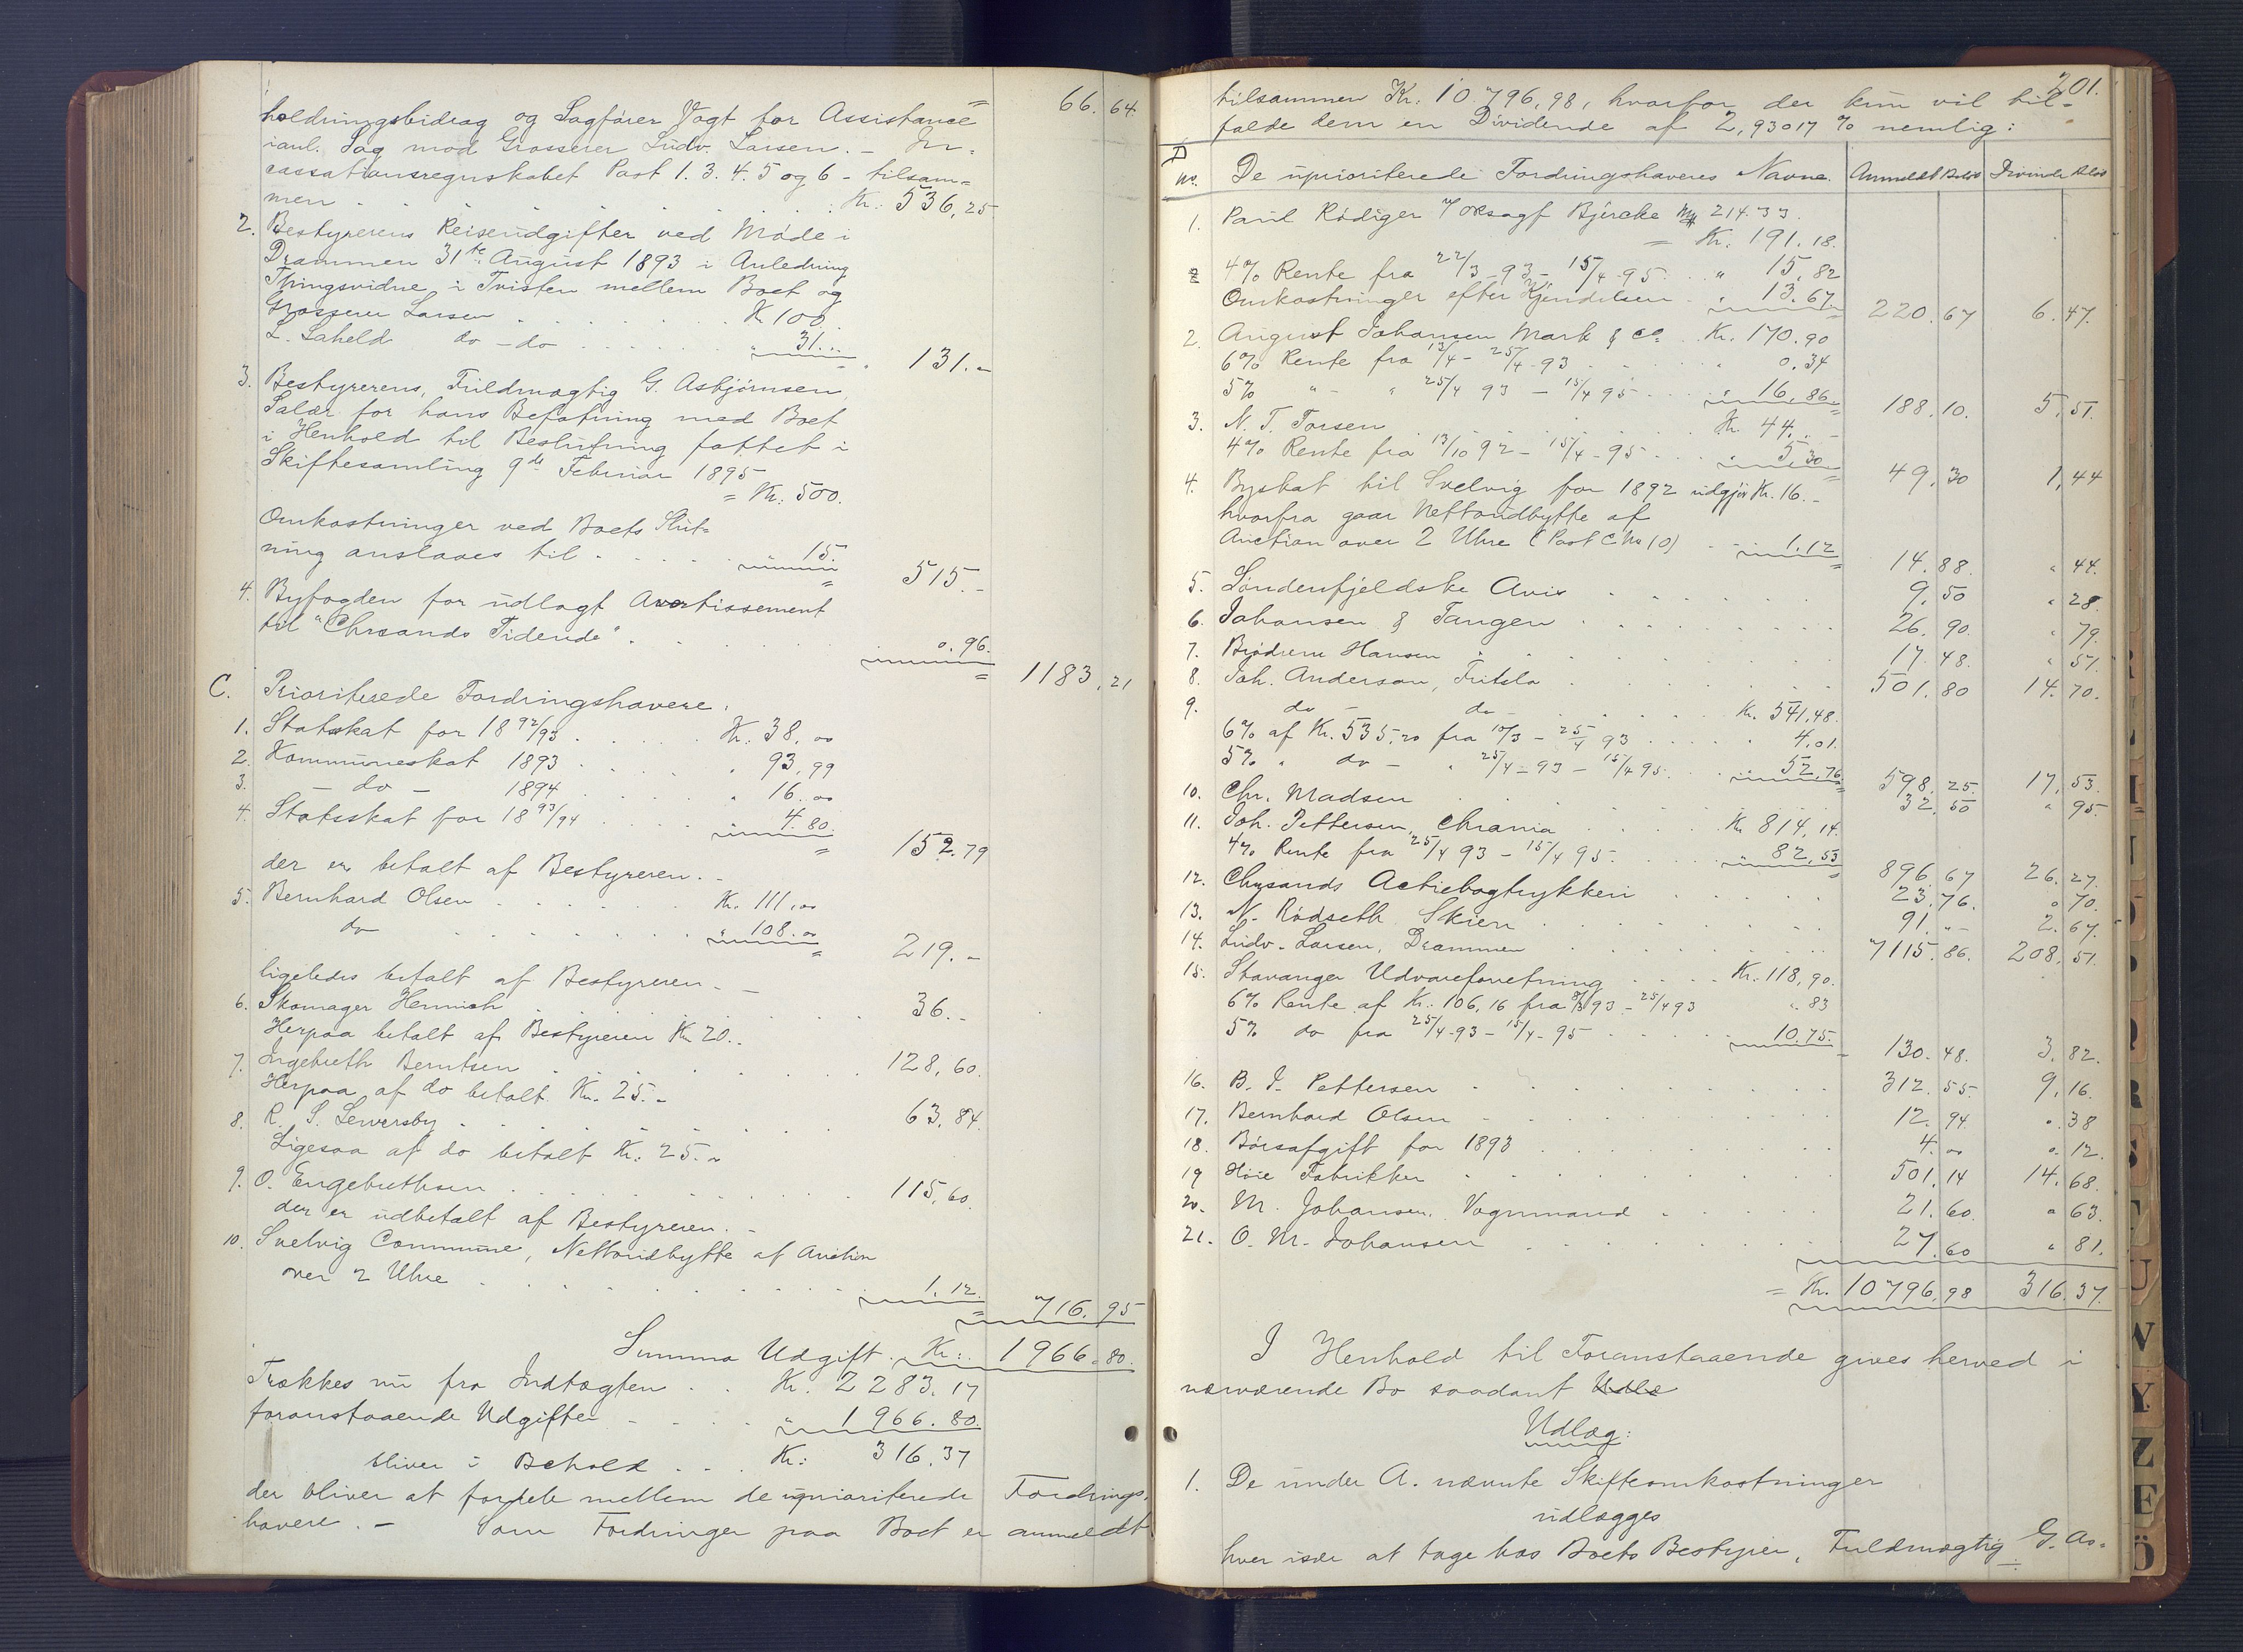 = 66.64
holdningsbidrag og Sagfører Vogt for Assistance
i anl. Sag mod Grosserer Ludv. Larsen. – In-
cassationsregnskabet Post 1. 3. 4. 5 og 6 – tilsam=
men . . . . . . . Kr. 536,25
2. Bestyrerens Reiseudgifter ved Møde i
Drammen 31te August 1893 i Anledning
Thingsvidne i Tvisten mellem Boet og
Grosserer Larsen . . . . . Kr 100
L. Saheld do – do . . . . . " 31...
= . 131.–
3. Bestyrerens, Fuldmægtig G. Asbjørnsen,
Salær for hans Befatning med Boet
i Henhold til Beslutning fattet i
Skiftesamling 9de Februar 1895
= Kr. 500.
Omkostninger ved Boets Slut=
ning anslaaes til . . . . . " 15.
= 515.–
4. Byfogden for udlagt Avertissement
til "Chrsands Tidende" . . . . . 0.96.
= 1183.21
C. Prioriterede Fordringshavere.
1. Statsskat for 1892/93 . . . . Kr. 38.00
2. Kommuneskat 1893 . . . . " 93,99
3. – do – 1894 . . . . " 16.00
4. Statsskat for 1893/94 . . . . " 4.80.
= 152.79
der er betalt af Bestyreren. –
5. Bernhard Olsen . . . . . Kr. 111,00
do . . . . . " 108.00
= 219.–
ligeledes betalt af Bestyreren. –
6. Skomager Hennich . . . . . 36.–
Herpaa betalt af Bestyreren Kr 20..
7. Ingebreth Berntsen . . . . . 128,60.
Herpaa af do betalt Kr. 25.–
8. R. S. . . . . . 63,84.
Ligesaa af do betalt Kr. 25.–
9. O. Engebrethsen . . . . . 115,60.
der er udbetalt af Bestyreren. –
10. Svelvig Commune, Nettoudbytte af Auction
over 2 Uhre . . . . . 1.12.
= 716.95
Summa Udgift Kr: 1966.80.
Trækkes nu fra Indtægten . . Kr. 2283.17
foranstaaende Udgifter – . . " 1966.80.
bliver i Behold . . . Kr: 316.37
der bliver at fordele mellem de uprioriterede Fordrings-
havere. – Som Fordringer paa Boet er anmeldt
201.
tilsammen Kr. 10796,98, hvorfor der kun vil til-
falde dem en Dividende af 2,93017 % nemlig:
D
No. De uprioriterede Fordringshaveres Navne. Anmeldt Beløb Dividende Beløb
1. Paul Rödiger v/ Orsagf Bjercke Mk 214.33.
= Kr. 191.18.
4% Rente fra 22/3-93 – 15/4-95 . . " 15.82
Omkostninger efter Kjendelsen . " 13.67 220.67 6.47.
2. August Johansen Mark & Co. . Kr. 170.90
6% Rente fra 13/4 – 25/4-93 . . . . " 0.34
5% " – " 25/4 93 – 15/4 95 . . . " 16,86 188.10. 5,51.
3. N. T. Torsen . . . . . Kr. 44. –
4% Rente fra 13/10 92 – 15/4-95 . . . " 5.30 49,30 1,44
4. Byskat til Svelvig for 1892 udgjør Kr. 16.–
hvorfra gaar Nettoudbytte af
Auction over 2 Uhre (Post C No 10) . . 1.12 14.88. " 44.
5. Søndenfjeldske Avis . . . . . 9,50 " 28.
6. Johansen & Tangen . . . . . 26.90. " 79.
7. Brødrene Hansen . . . . . 17.48. " 51.
8. Joh. Anderson, Fritzla . . . . . 501.80 14.70.
9. do – do – . . . . Kr. 541.48.
6% af Kr. 535,20 fra 10/3 – 25/4 93 . . . . " 4,01.
5% " do – " 25/4-93 – 15/4 95 . . " 52,76 598.25. 17,53.
10. Chr. Madsen . . . . . 32.50 " 95.
11. Joh. Pettersen, Chrania . . . . Kr 814,14.
4% Rente fra 25/4 93 – 15/4 95 . . . " 82,53 896.67 26.27.
12. Chrsands Actiebogtrykkeri . . . . . 23.76. 0 70.
13. N. Rødseth Skien . . . . . 91."– 2.67.
14. Ludv. Larsen, Drammen . . . . . 7115.86. 208,51.
15. Stavanger Udvareforretning . . . . Kr. 118,90.
6% Rente af Kr. 106,16 fra 8/3 93 – 25/4 93 ". 83
5% do fra 25/4-93 – 15/4-95 . . . 10.75. 130.48. 3.82.
16. B. J. Pettersen . . . . . 312.55. 9,16.
17. Bernhard Olsen . . . . . 12.94 ".38
18. Børsafgift for 1893 . . . . . 4.00 0.12.
19 Høie Fabrikker . . . . . 501.14 14.68.
20. M. Johansen. Vognmand . . . . . 21.60. " 63.
21. O. M. Johansen . . . . . 27.60 " 81.
= Kr. 10796.98 316.37.
I Henhold til Foranstaaende gives herved i
nærværende Bo saadant Udlæ
Udlæg:
1. De under A. nævnte Skifteomkostninger
udlægges
hver især at tage hos Boets Bestyrer, Fuldmægtig G. As-